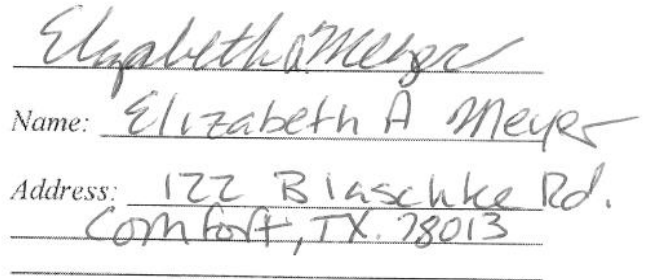 Elizabeth A Meyer
Name: Elizabeth A Meyer
Address: 122 Blaschke Rd.
Comfort, TX. 78013